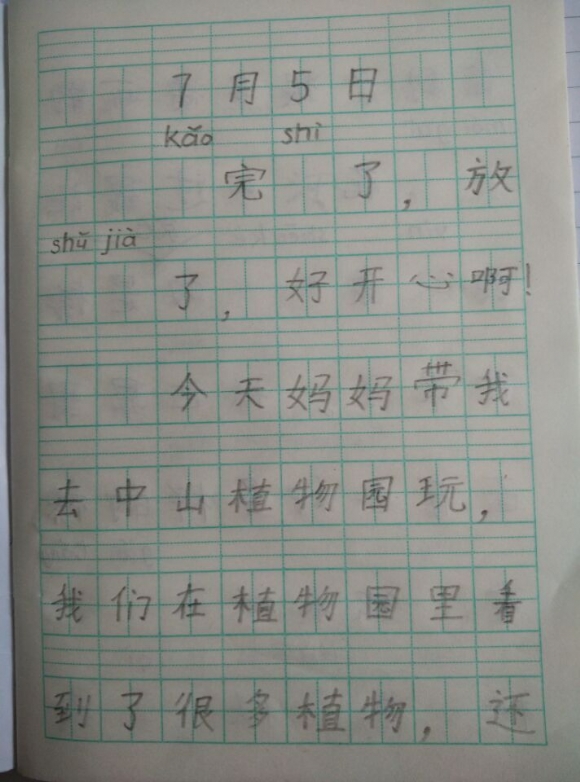 7月5日
kǎo shì
完了，放
shǔ jià
了，好开心啊！
今天妈妈带我
去中山植物园玩，
我们在植物园里看
到了很多植物，还